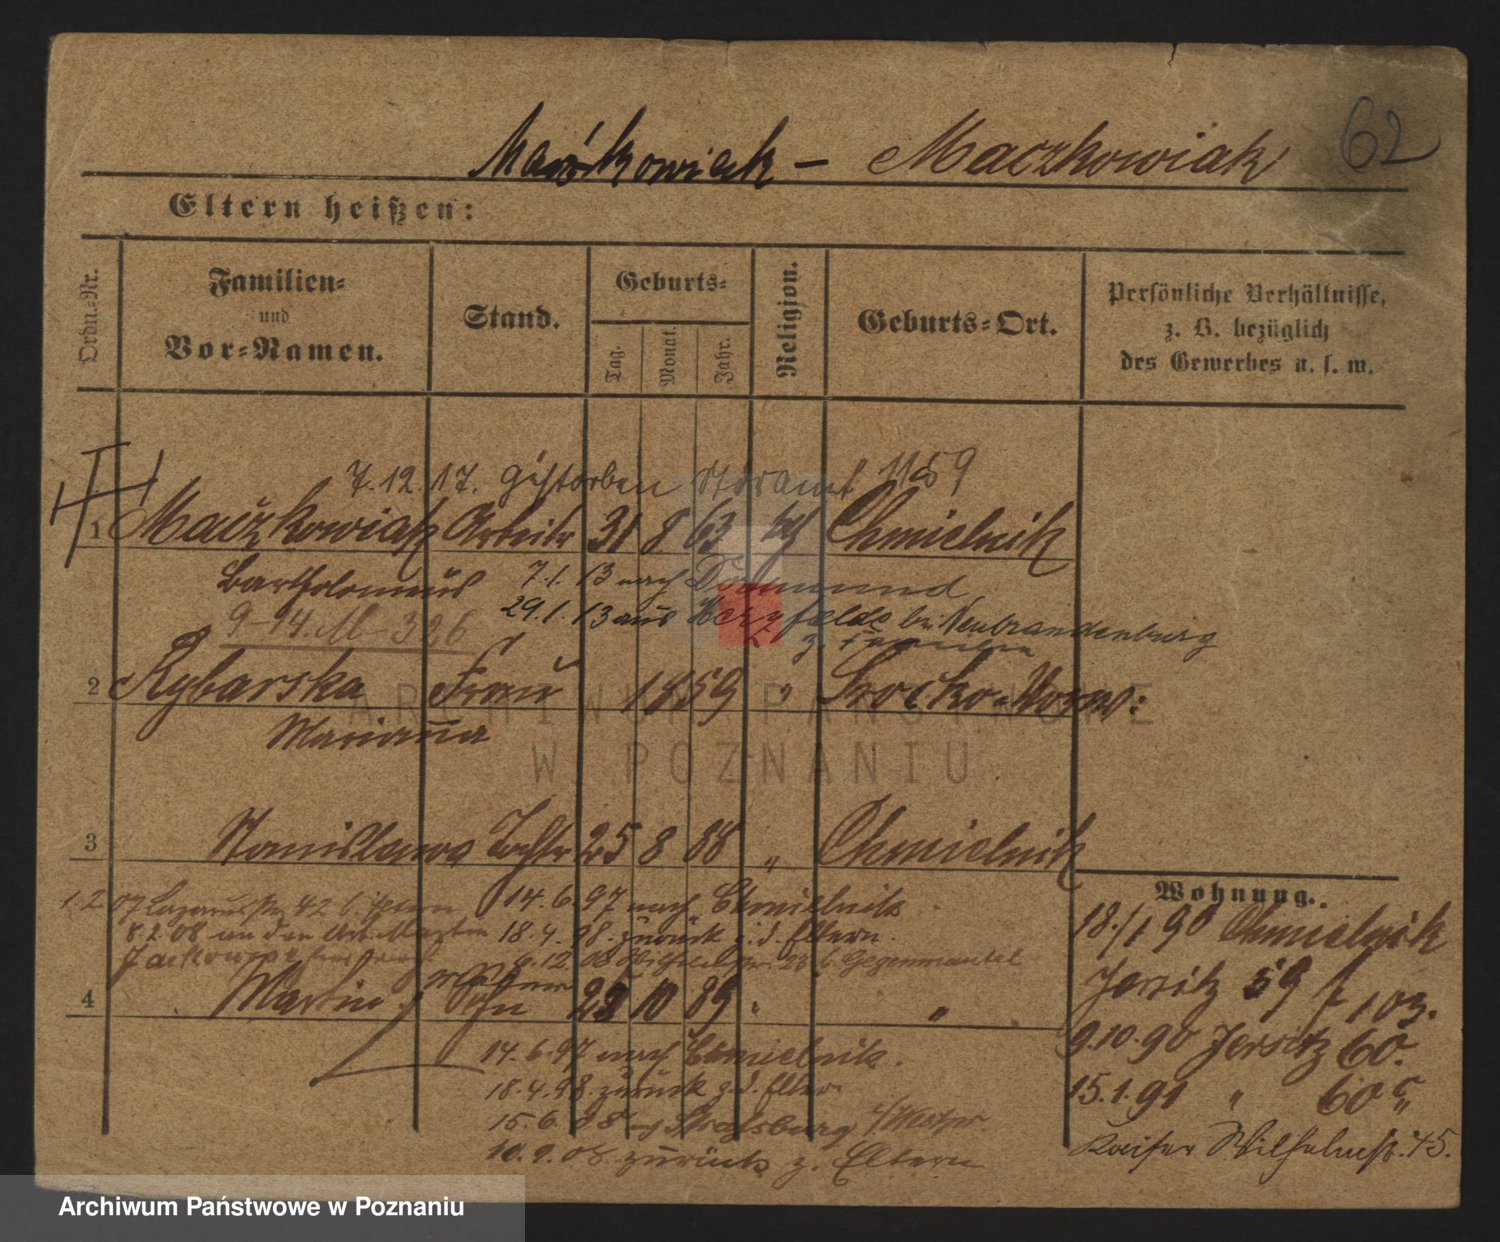 62
Maćkowiak – Maczkowiak
Eltern heißen:
Ordn.-Nr.
Familien-
und
Vor-Namen.
Stand.
Geburts-
Tag.
Monat.
Jahr.
Religion.
Geburts-Ort.
Persönliche Verhältnisse,
z. B. bezüglich
des Gewerbes u. s. w.
7.12.17. gestorben 1159
1 Maćzkowiak Arbeiter 31 8 63 Chmielnik
Bartholomäus 7.1.13 nach Dortmund
29.1.13 aus bei Neubrandenburg
9-14. M-326 z. Familie
2 Rybarska Frau 1859 "
Marianna
3 Stanislawa Tochter 25 8 88 " Chmielnik
14.6.97 nach Chmielnik
18.4.98. zurück z. d. Eltern.
1.2.07
8.2.08
4 Martin Sohn 10 89 " "
14.6.97 nach Chmielnik.
18.4.98. zurück z. d. Elter
15.6.08 Straßburg
10.9.08. zurück z. Eltern
Wohnung.
18./1 90 Chmielnik
Jersitz 59 f 103.
9.10.90 Jersitz 60.
15.1.91 " 60
Kaiser Wilhelmstr. 45.
ARCHIWUM PAŃSTWOWE
W POZNANIU
Archiwum Państwowe w Poznaniu